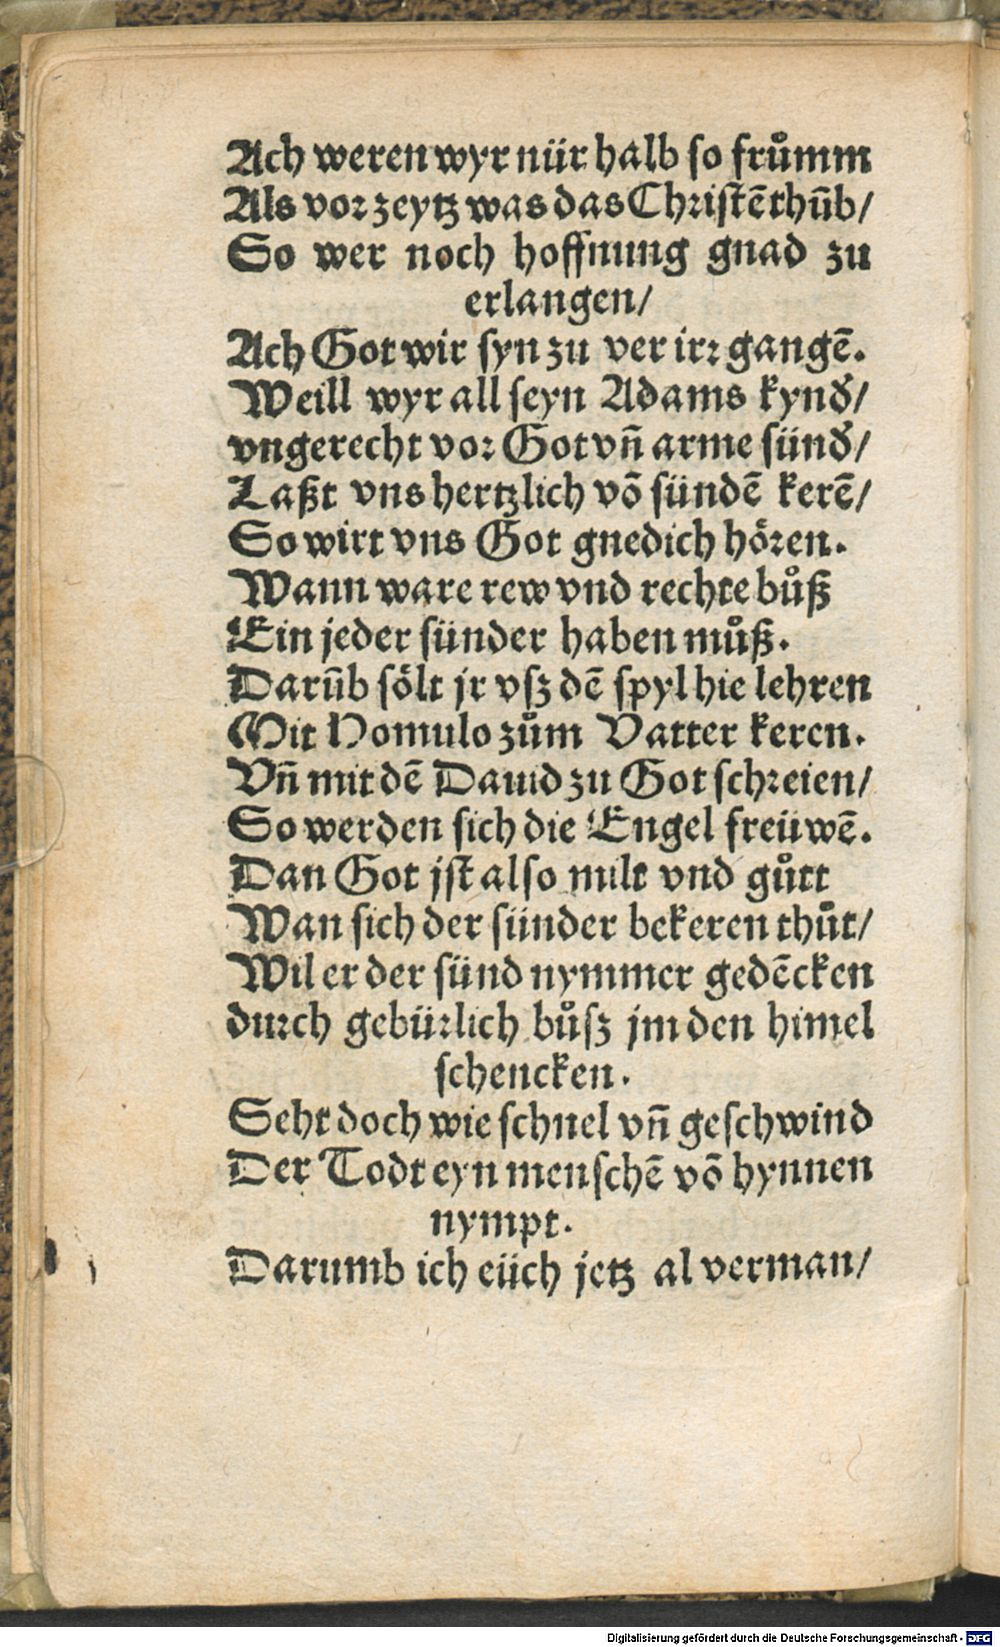 Ach weren wyr nür halb so frůmm
Als vor zeytz was das Christēthūb/
So wer noch hoffnung gnad zu
erlangen/
Ach Got wir syn zu ver irr gangē.
Weill wyr all seyn Adams kynd/
vngerecht vor Got vn̄ arme sünd/
Laßt vns hertzlich vō sündē kerē/
So wirt vns Got gnedich hören.
Wann ware rew vnd rechte bůß
Ein jeder sünder haben můß.
Darūb sölt jr vsz dē spyl hie lehren
Mit Homulo zům Vatter keren.
Vn̄ mit dē Dauid zu Got schreien/
So werden sich die Engel freüwē.
Dan Got jst also milt vnd gůtt
Wan sich der sünder bekeren thůt/
Wil er der sünd nymmer gedēcken
durch gebürlich bůsz jm den himel
schencken.
Seht doch wie schnel vn̄ geschwind
Der Todt eyn menschē vō hynnen
nympt.
Darumb ich eüch jetz al verman/
Digitalisierung gefördert durch die Deutsche Forschungsgemeinschaft - DFG